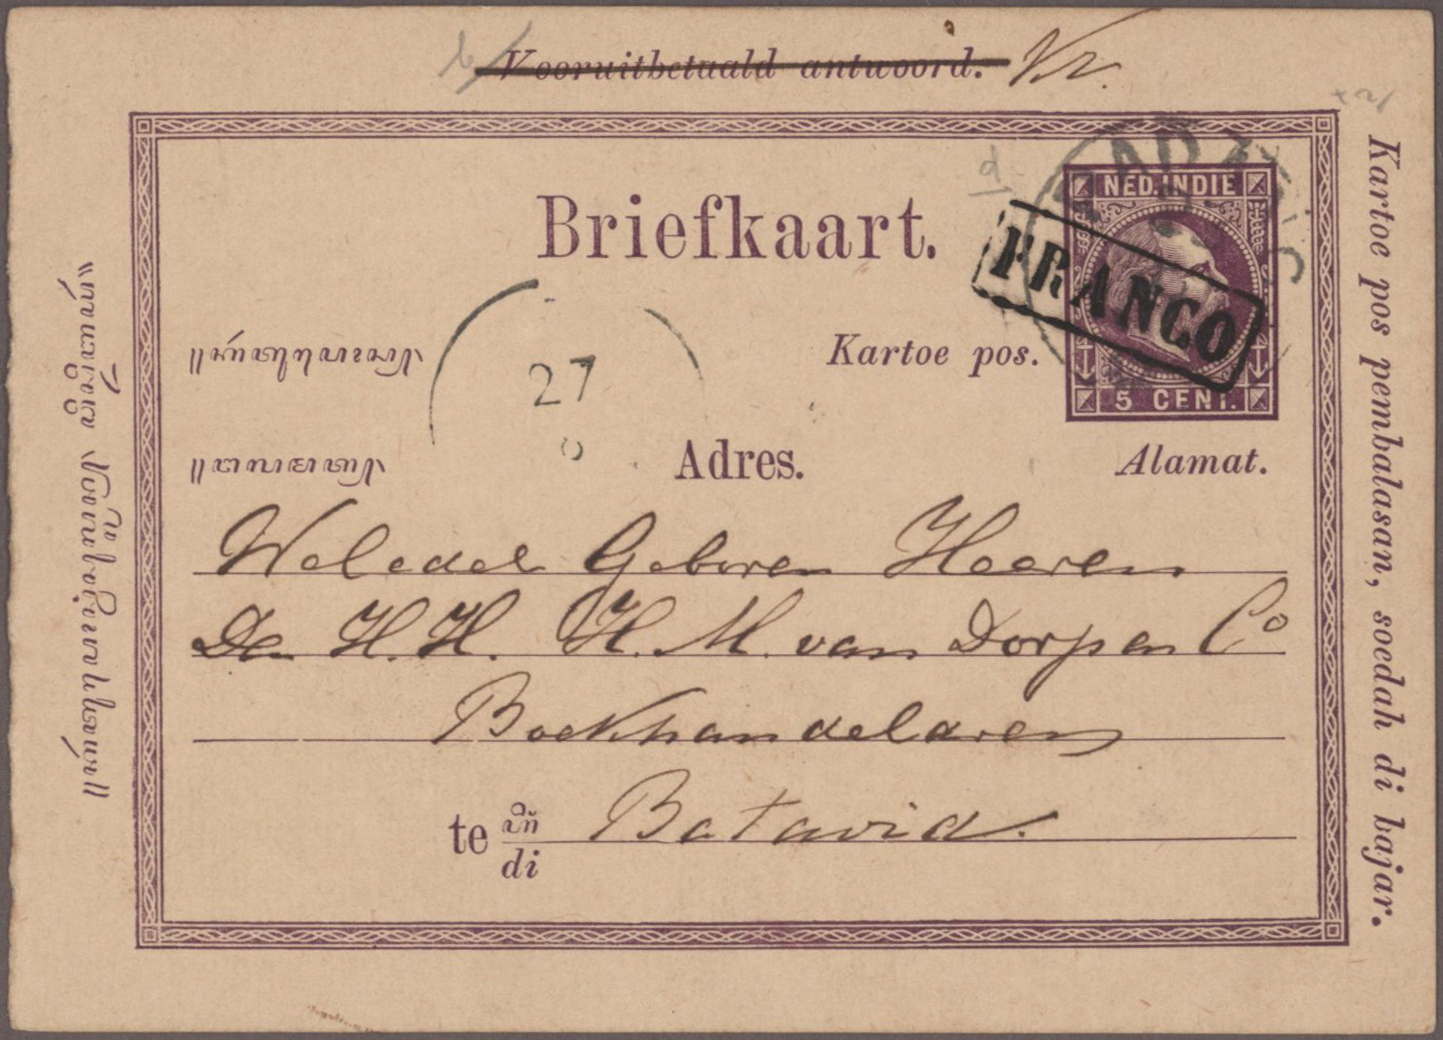 Vooruitbetaald antwoord.
Briefkaart.
NED. INDIE
FRANCO
5 CENT.
Kartoe pos.
27
Adres.
Alamat.
Weledel Geboren Heeren
De H.H. H. M. van Dorp en Co
Boekhandelaren
te
di
Batavia.
Kartoe pos pembalasan, soedah di bajar.